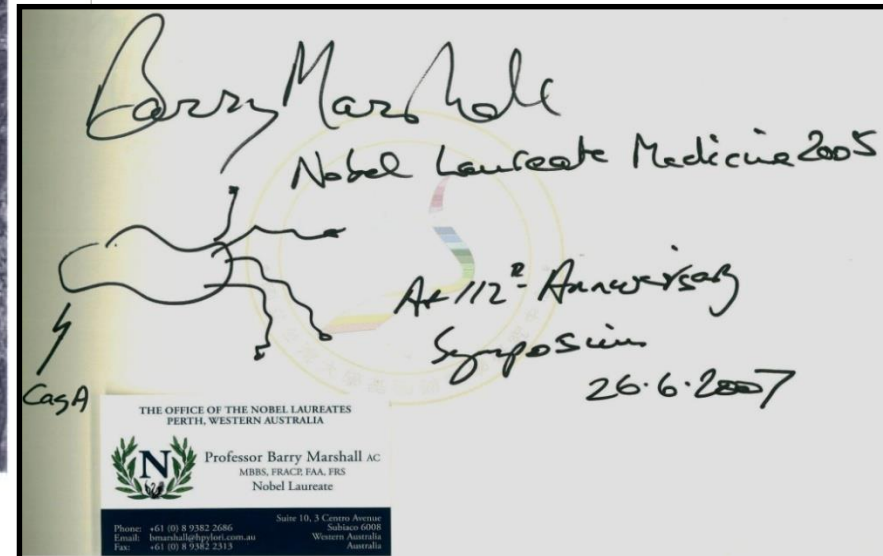 Barry Marshall
Nobel Laureate Medicine 2005
At 112th Anniversary
Symposium
26.6.2007
CagA
THE OFFICE OF THE NOBEL LAUREATES
PERTH, WESTERN AUSTRALIA
N
Professor Barry Marshall AC
MBBS, FRACP, FAA, FRS
Nobel Laureate
Phone: +61 (0) 8 9382 2686
Email: bmarshall@hpylori.com.au
Fax: +61 (0) 8 9382 2313
Suite 10, 3 Centro Avenue
Subiaco 6008
Western Australia
Australia